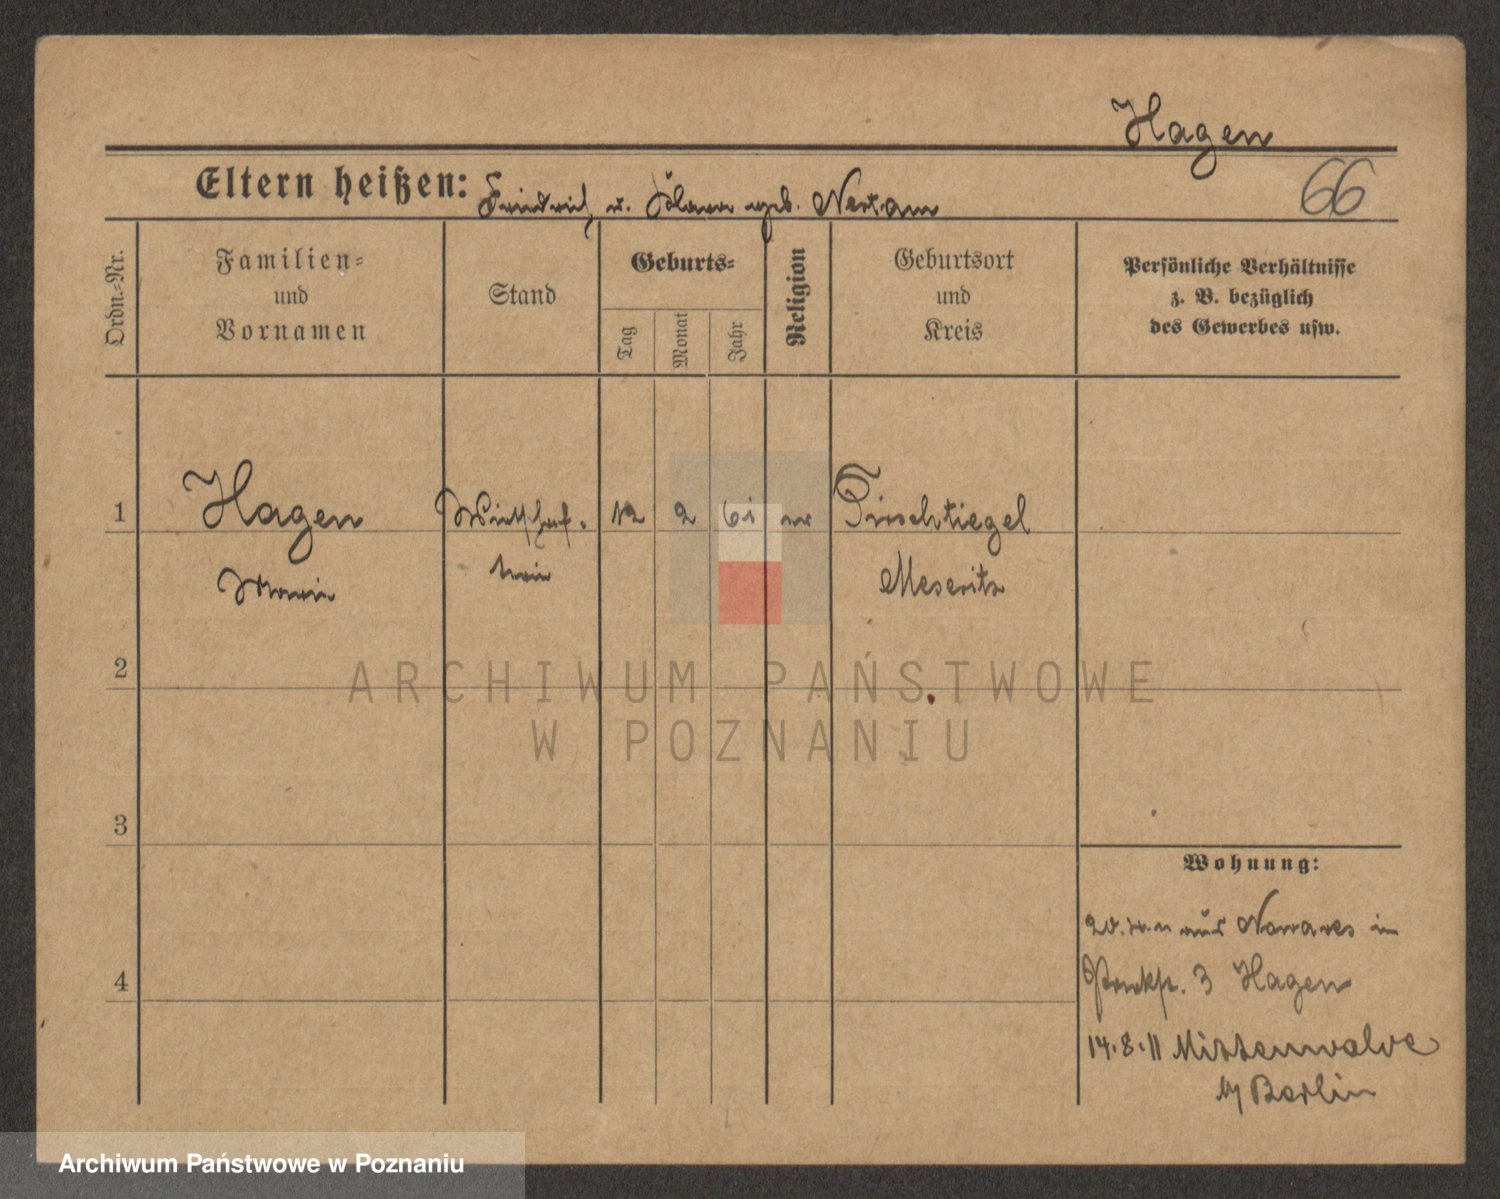 Hagen
Eltern heißen: Friedrich u. geb.
66
Ordn.-Nr.
Familien-
und
Vornamen
Stand
Geburts-
Tag
Monat
Jahr
Religion
Geburtsort
und
Kreis
Persönliche Verhältnisse
z. B. bezüglich
des Gewerbes usw.
1 Hagen Wirtschaf- 12 2 61 Tirschtiegel
Marie terin Meseritz
2
ARCHIWUM PAŃSTWOWE
W POZNANIU
3
Wohnung:
aus Nowawes in
3 Hagen
4
14.8.11 Mittenwalde
b/ Berlin
Archiwum Państwowe w Poznaniu